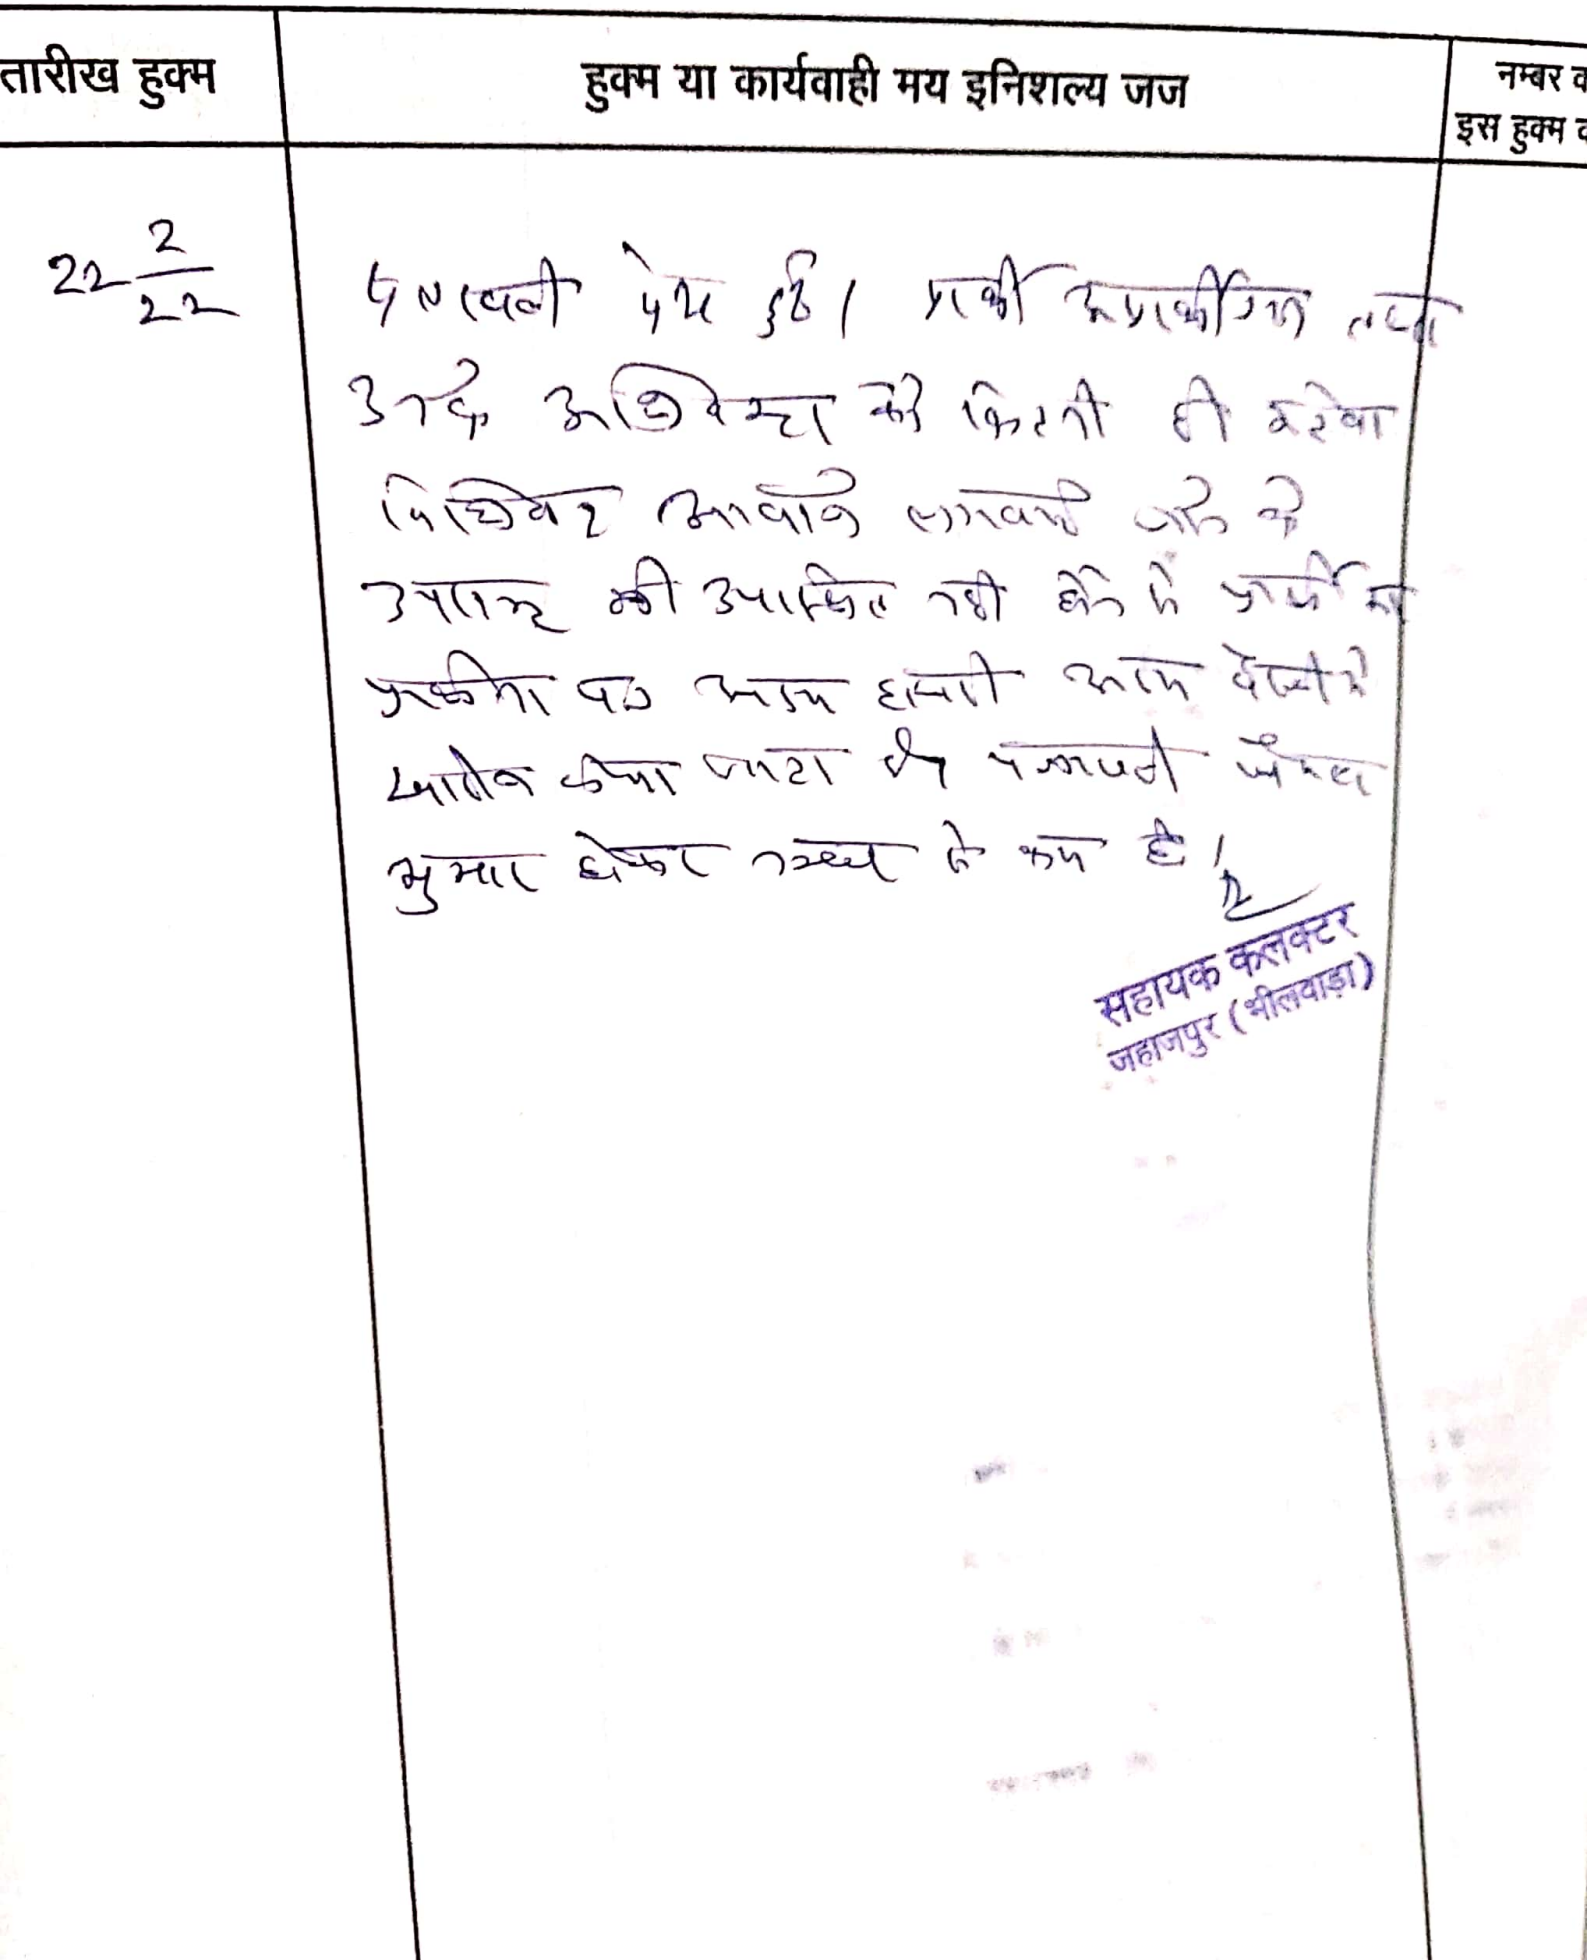 तारीख हुक्म
हुक्म या कार्यवाही मय इनिशल्य जज
नम्बर व
इस हुक्म व
22 2/22
पत्रावली पेश हुई। प्रार्थी अप्रार्थीगण तथा
उनके अधिवक्ता को कितनी ही
विधिवत आवाजे लगवाई जाने के
उपरान्त भी उपस्थित नही होने से प्रार्थी का
प्रार्थना पत्र अदम हाजरी अदम पैरवी मे
खारीज किया जाता है पत्रावली फैसल
शुमार होकर नम्बर से कम हो।
सहायक कलक्टर
जहाजपुर (भीलवाड़ा)